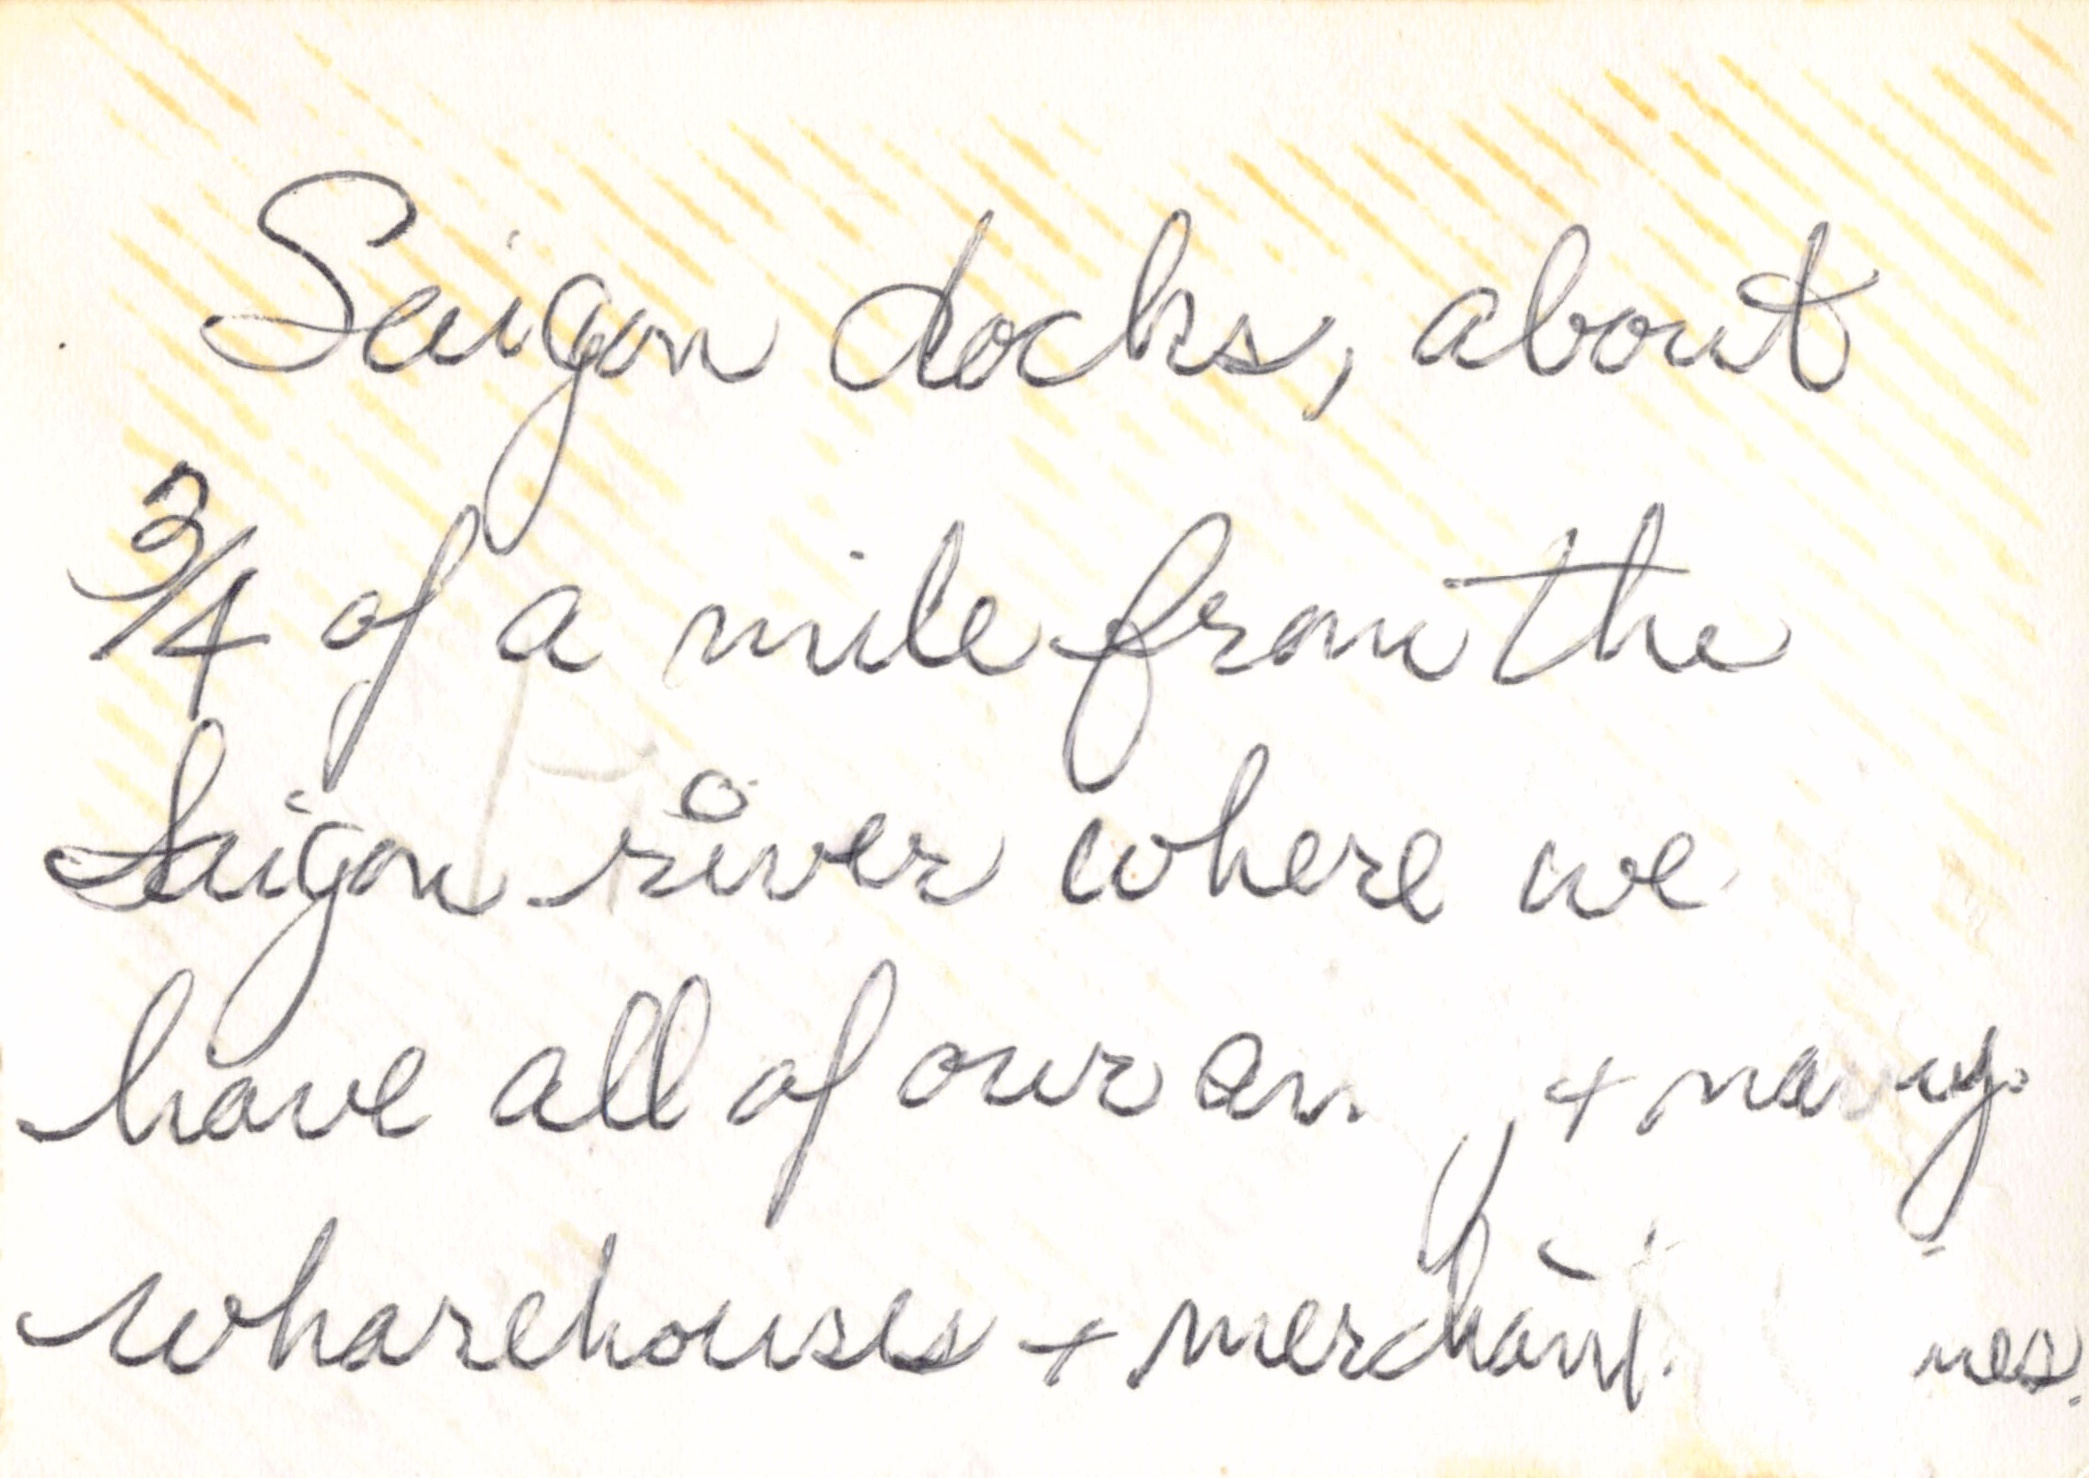 Saigon docks, about
3/4 of a mile from the
Saigon river where we
have all of our + navy
wharehouses + merchant